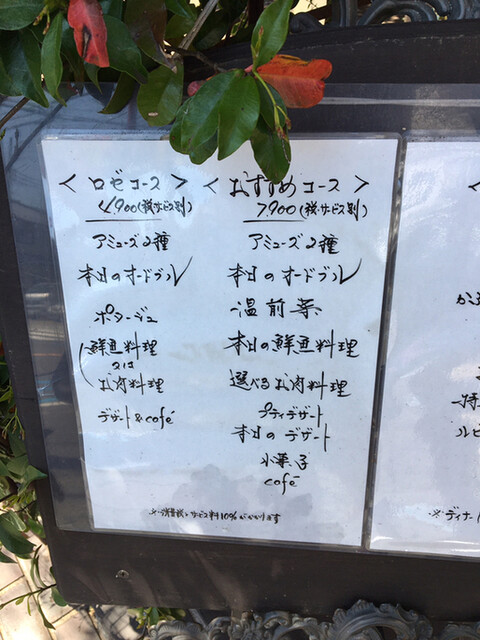 <ロゼコース>
4,900(税・サービス別)
アミューズ2種
本日のオードブル
ポタージュ
鮮魚料理
又は
お肉料理
デザート&café
<おすすめコース>
7,900(税・サービス別)
アミューズ2種
本日のオードブル
温前菜
本日の鮮魚料理
選べるお肉料理
プティデザート
本日のデザート
小菓子
café
※消費税、サービス料10%がかかります
※ディナー